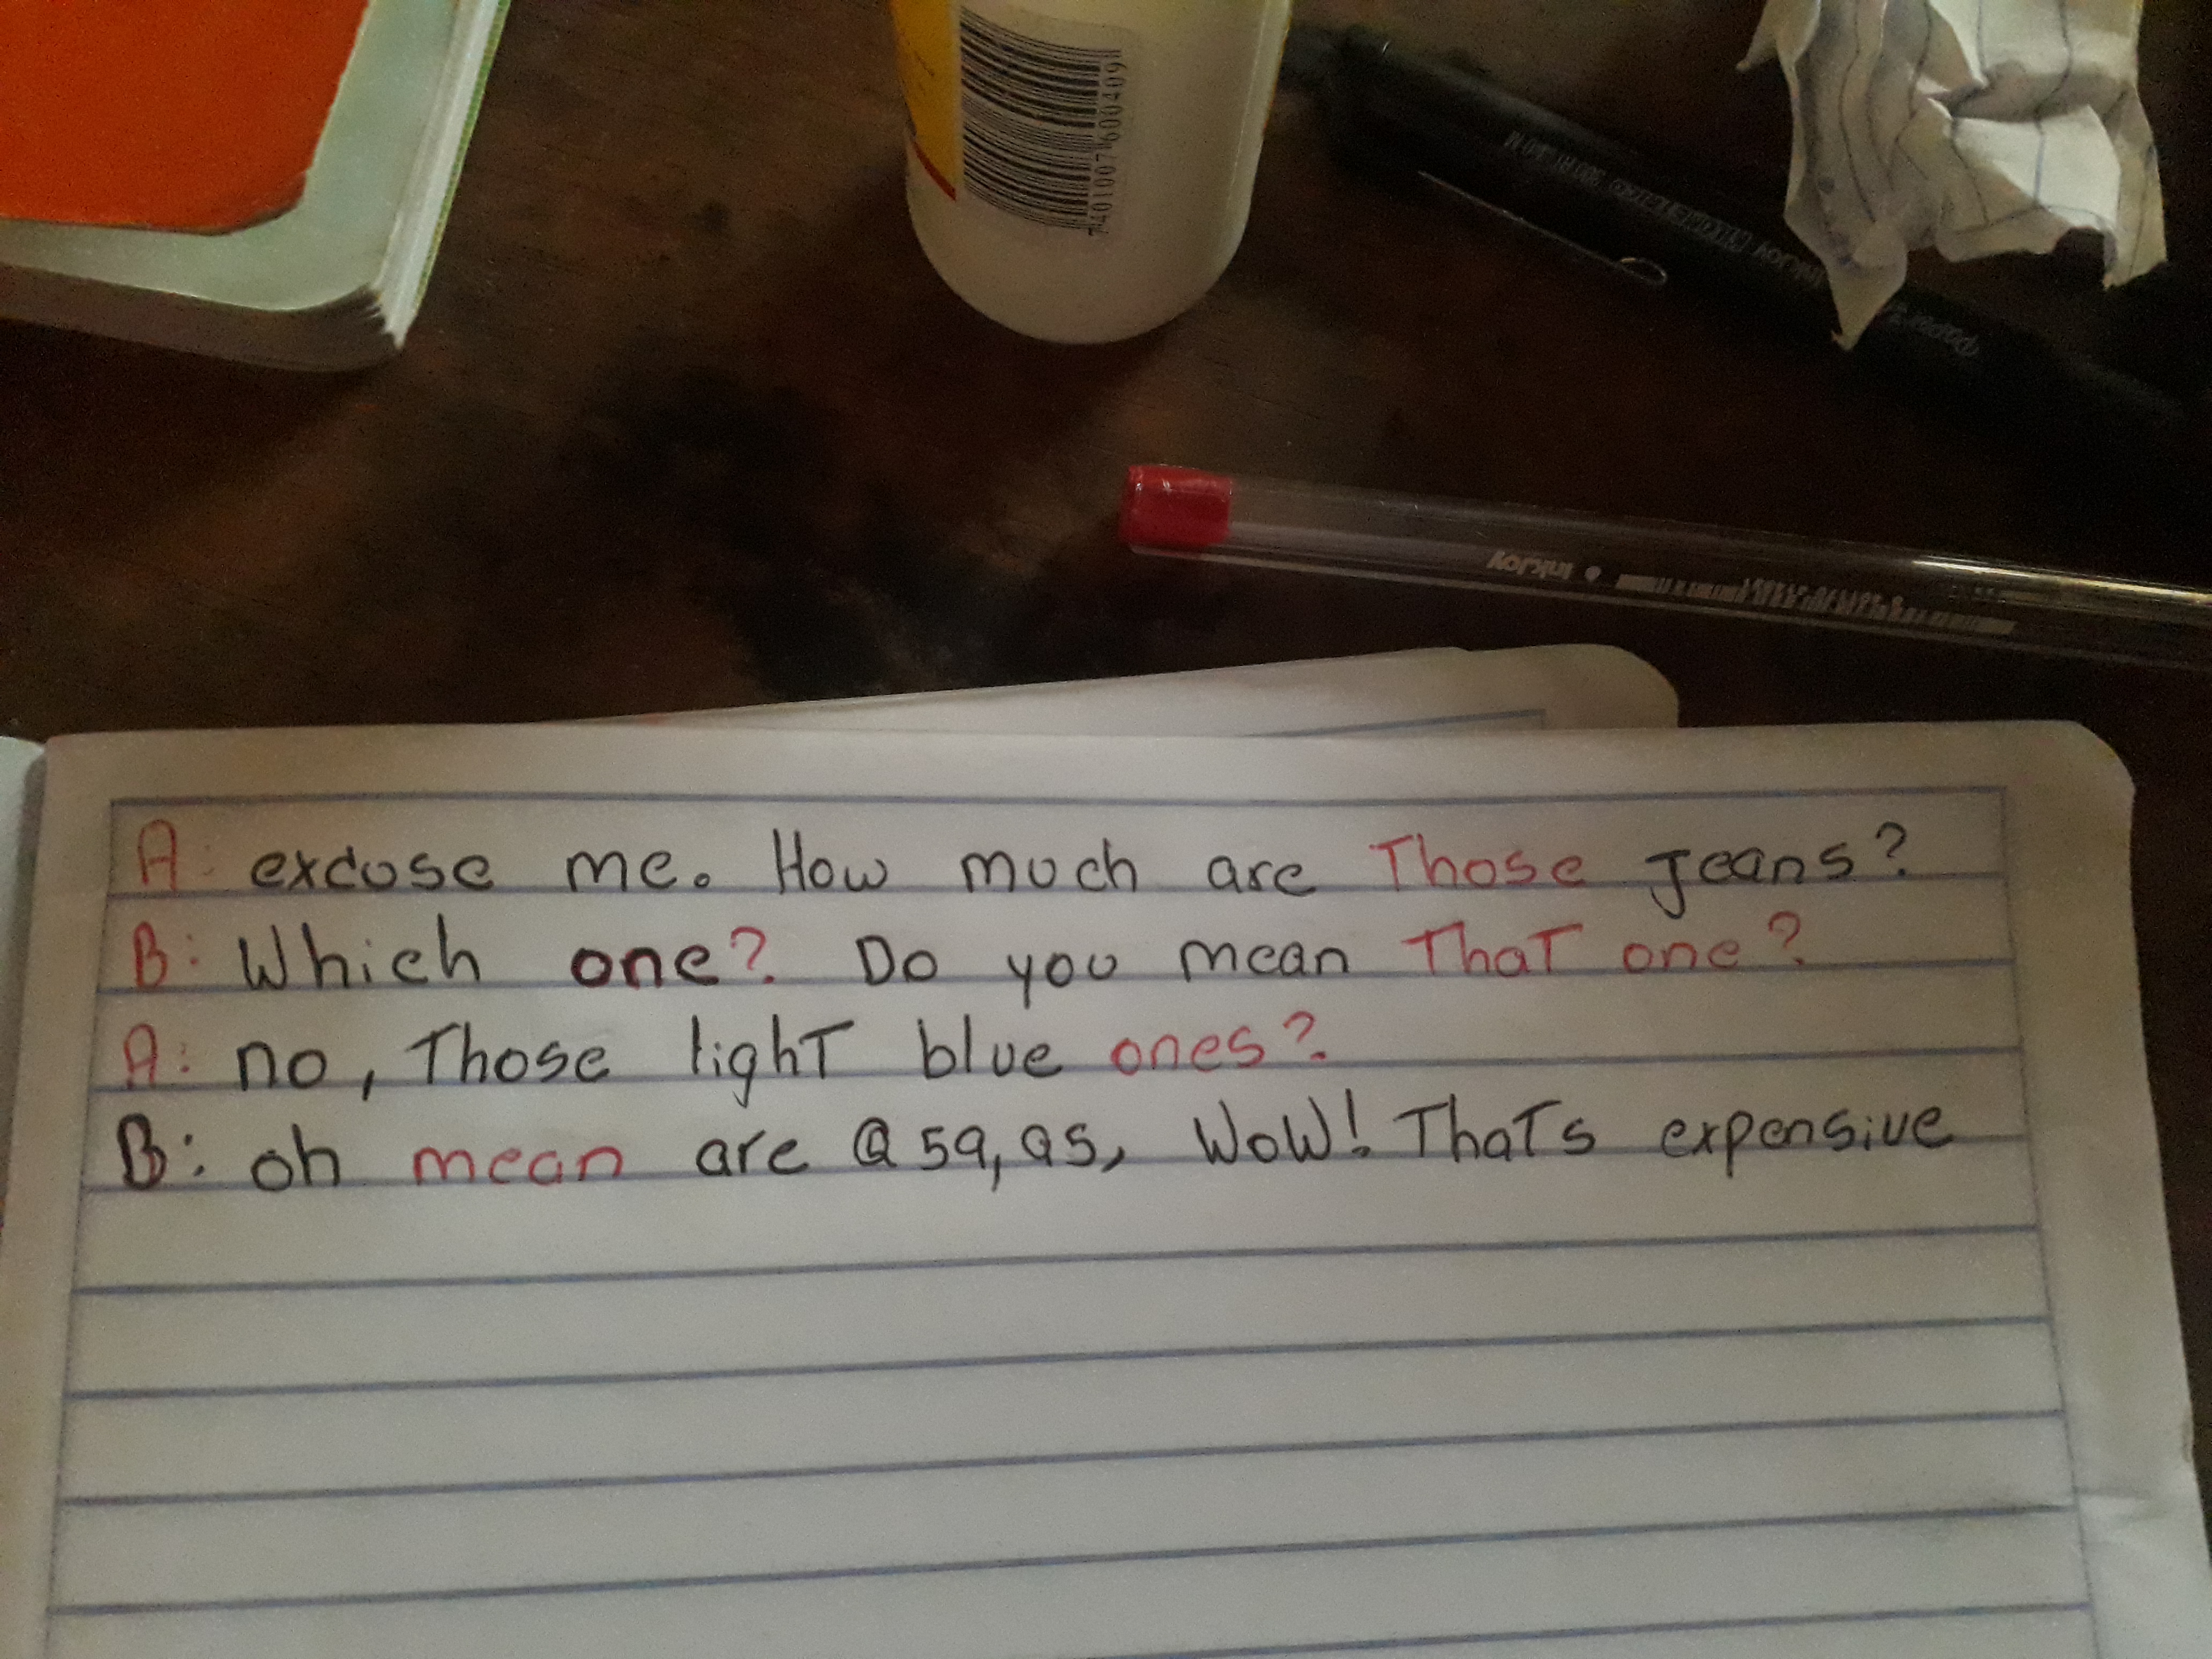 7401007600409
Paper
InkJoy
InkJoy
A: excuse me. How much are Those Jeans?
B: Which one? Do you mean That one?
A: no, Those light blue ones?
B: oh mean are @ 59,95, WoW! Thats expensive